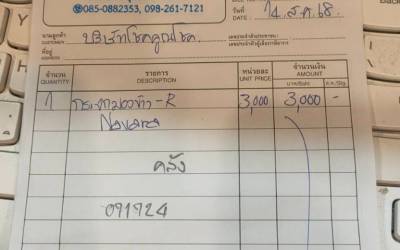 ☎085-0882353, 098-261-7121
วันที่ DATE 14 ส.ค. 68
นามลูกค้า CUSTOMER บริษัทโชคคูณโชค
ที่อยู่
จำนวน QUANTITY รายการ DESCRIPTION หน่วยละ UNIT PRICE จำนวนเงิน AMOUNT
1 กระจกมองข้าง-R 3,000 3,000 -
Navara
คลัง
091724